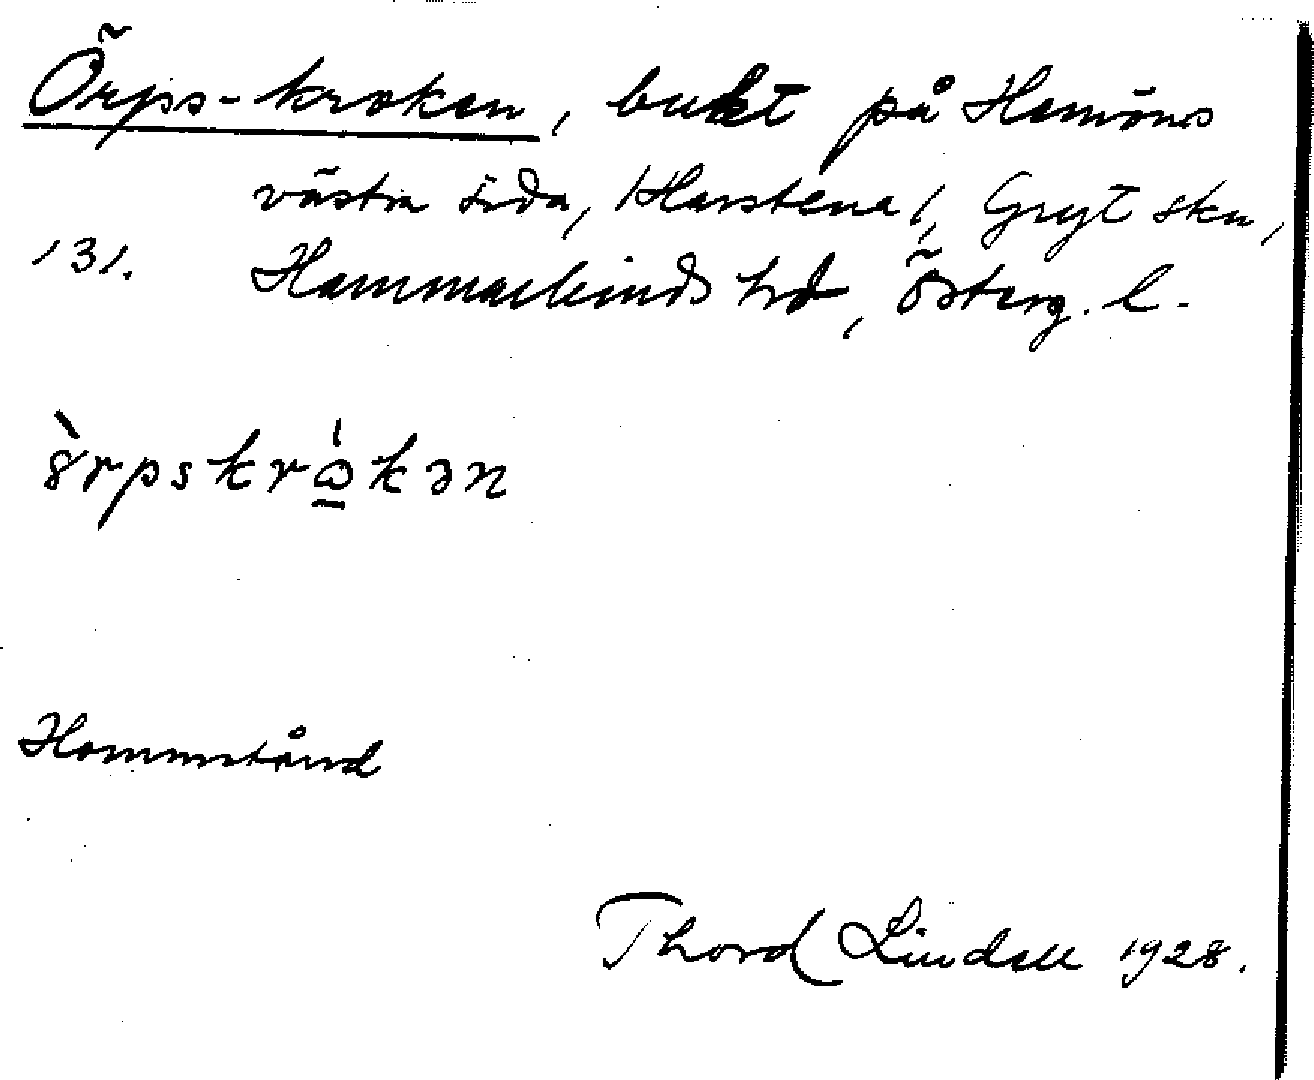 Örps-kroken, bukt på Hamöns
västra sida, /Harstena/, Gryt skn,
131. Hammarkinds hd, Österg. l.
ȣ̀rpskrὼ̱kən
Hommstånd
Thord Lindell 1928.